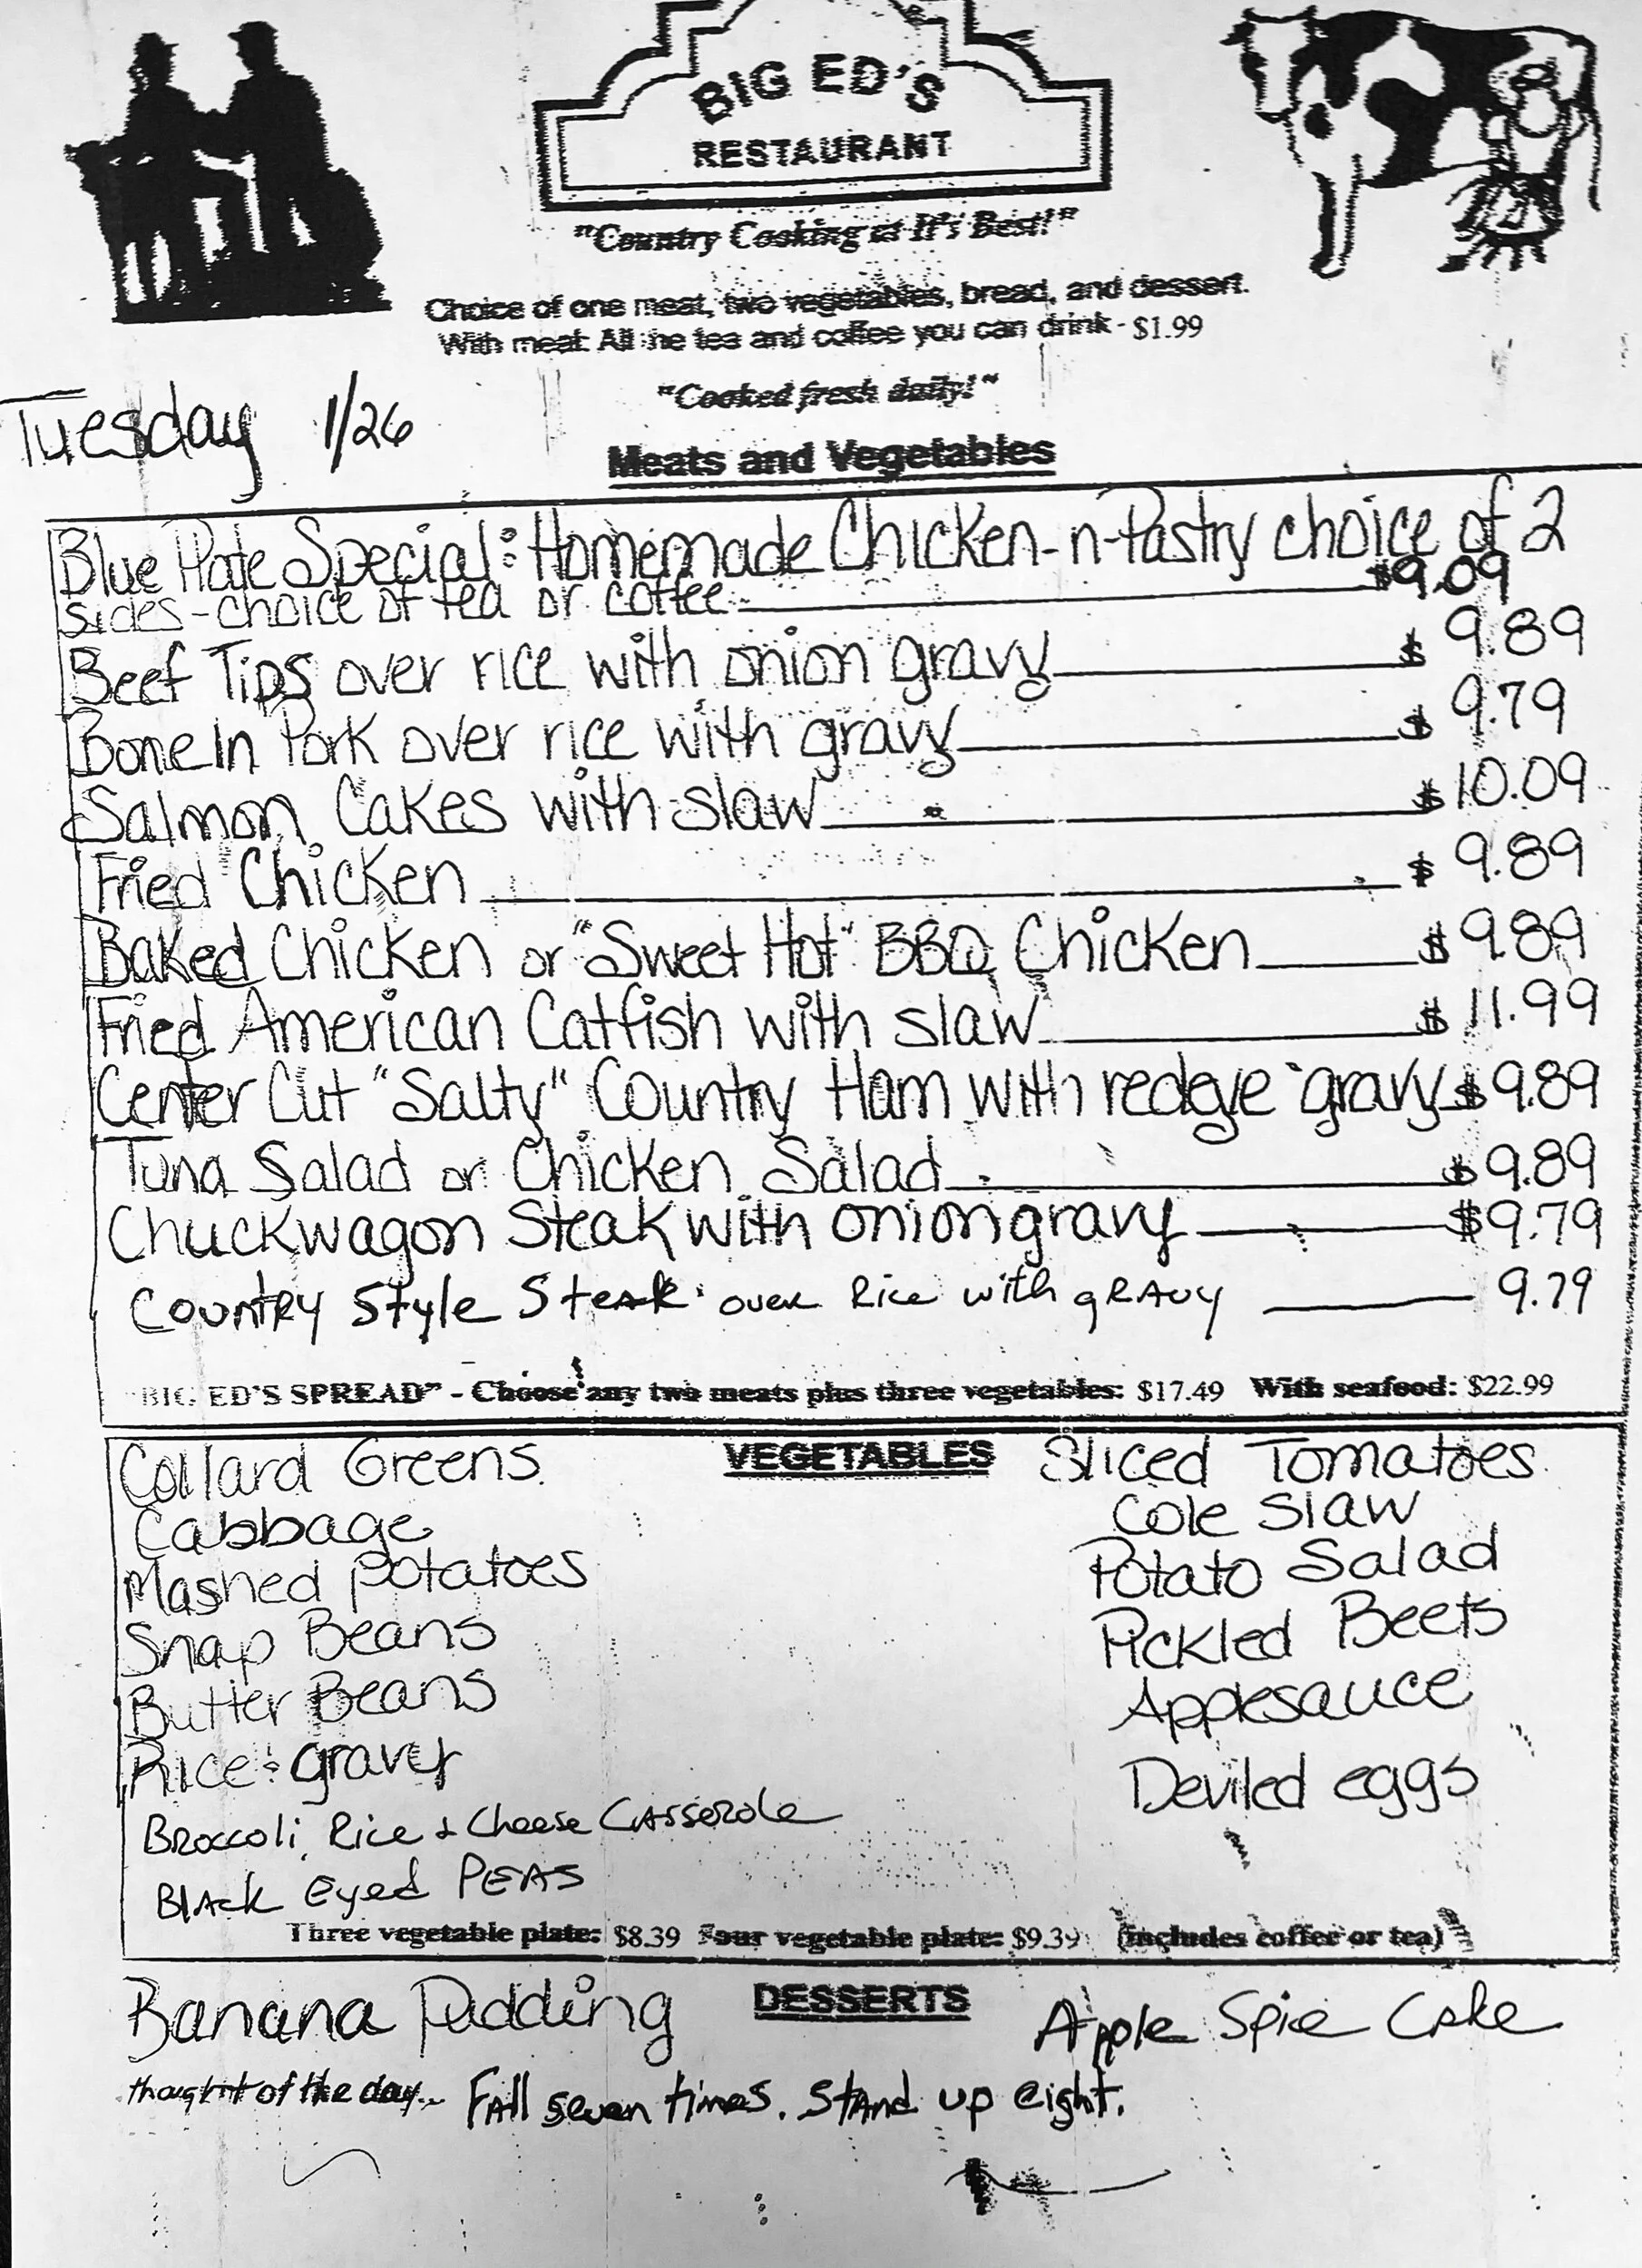 BIG ED'S
RESTAURANT
"Country Cooking at It's Best!"
Choice of one meat, two vegetables, bread, and dessert.
With meat: All the tea and coffee you can drink - $1.99
"Cooked fresh daily!"
Tuesday 1/26
Meats and Vegetables
Blue Plate Special: Homemade Chicken-n-Pastry choice of 2
sides - choice of tea or coffee $9.09
Beef Tips over rice with onion gravy $ 9.89
Bone In Pork over rice with gravy $ 9.79
Salmon Cakes with slaw $ 10.09
Fried Chicken $ 9.89
Baked Chicken or "Sweet Hot" BBQ Chicken $ 9.89
Fried American Catfish with slaw $ 11.99
Center Cut "Salty" Country Ham with redeye gravy $ 9.89
Tuna Salad or Chicken Salad $ 9.89
Chuckwagon Steak with onion gravy $9.79
Country Style Steak over Rice with gravy 9.79
"BIG ED'S SPREAD" - Choose any two meats plus three vegetables: $17.49 With seafood: $22.99
VEGETABLES
Collard Greens
Cabbage
Mashed Potatoes
Snap Beans
Butter Beans
Rice & gravy
Broccoli, Rice & Cheese Casserole
Black Eyed Peas
Sliced Tomatoes
Cole Slaw
Potato Salad
Pickled Beets
Applesauce
Deviled eggs
Three vegetable plate: $8.39 Four vegetable plate: $9.39 (includes coffee or tea)
DESSERTS
Banana Pudding
Apple Spice Cake
thought of the day... Fall seven times. Stand up eight.